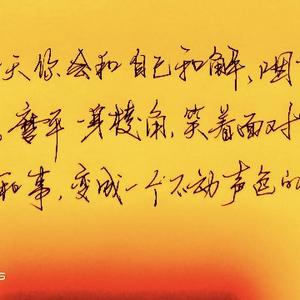 天你会和自己和解，
磨平一身棱角，笑着面对
和事，变成一个不动声色的